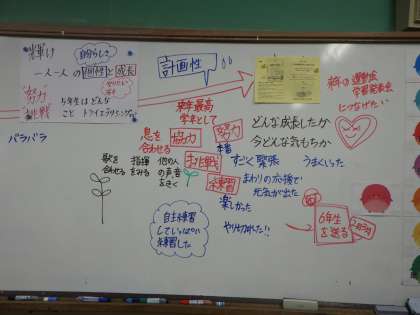 輝け
自分らしさ
一人一人の個性と成長
努力
挑戦
5年生はどんな
こと トライ
バラバラ
計画性
来年最高
学年として
息を
合わせる
協力
努力
本番
挑戦
練習
歌を
合わせる
指揮
をみる
他の人
の声を
きく
すごく緊張
うまくいった
まわりの応援で
元気が出た
楽しかった
やり切れた!!
自主練習
していっぱい
練習した
どんな成長したか
今どんな気もちか
来年の運動会
学習発表会
につなげたい
6年生
を送る